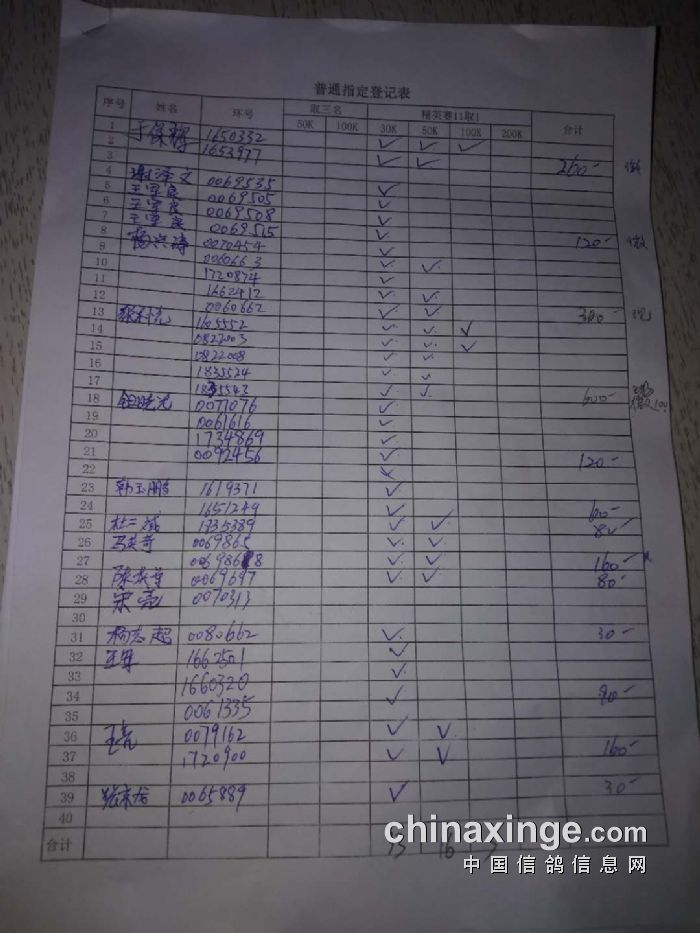 普通指定登记表
序号 姓名 环号 取三名 精英赛11取1 合计
50K 100K 30K 50K 100K 200K
1 于俊辉 1650332 ✓ ✓ ✓
2 1653977 ✓ ✓
3 260-
4 谢泽文 0069535 ✓
5 王军良 0069505 ✓
6 王军良 0069508 ✓
7 王军良 0069515 ✓ 120-
8 杨兴涛 0070454 ✓
9 0060663 ✓ ✓
10 1720874 ✓
11 1662412 ✓ ✓
12 0060662 ✓ ✓ 380- 现
13 1105552 ✓ ✓ ✓
14 0822003 ✓ ✓ ✓
15 0822008 ✓ ✓
16 1835524 ✓ ✓
17 1835543 ✓ ✓ 600-
18 0071076 ✓
19 0061616 ✓
20 1734869 ✓
21 0092456 ✓ 120-
22
23 韩玉鹏 1619371 ✓
24 1651249 ✓ 60-
25 杜二斌 1735389 ✓ ✓ 80-
26 0069865 ✓ ✓
27 0069868 ✓ ✓ 160-
28 0069697 ✓ ✓ 80-
29 宋亮 0070313
30
31 杨志超 0080662 ✓ 30-
32 王军 1662501 ✓
33 1660320 ✓
34 0061335 ✓ 90-
35
36 王亮 0079162 ✓ ✓
37 1720900 ✓ ✓ 160-
38
39 0065889 ✓ 30-
40
合计 16 3
chinaxinge.com
中国信鸽信息网